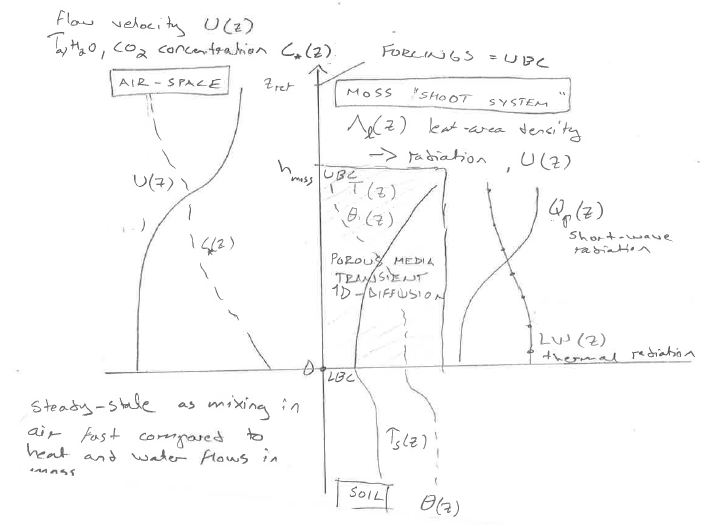 Flow velocity U(z)
T, H2O, CO2 concentration C*(z)
FORCINGS = UBC
AIR-SPACE
zref
MOSS "SHOOT SYSTEM"
Λℓ(z) leaf-area density
-> radiation, U(z)
hmoss
UBC
T(z)
U(z)
θ(z)
Qp(z)
short-wave
radiation
C*(z)
POROUS MEDIA
TRANSIENT
1D-DIFFUSION
LW(z)
thermal radiation
0
LBC
Steady-state as mixing in
air fast compared to
heat and water flows in
moss
Ts(z)
SOIL
θ(z)